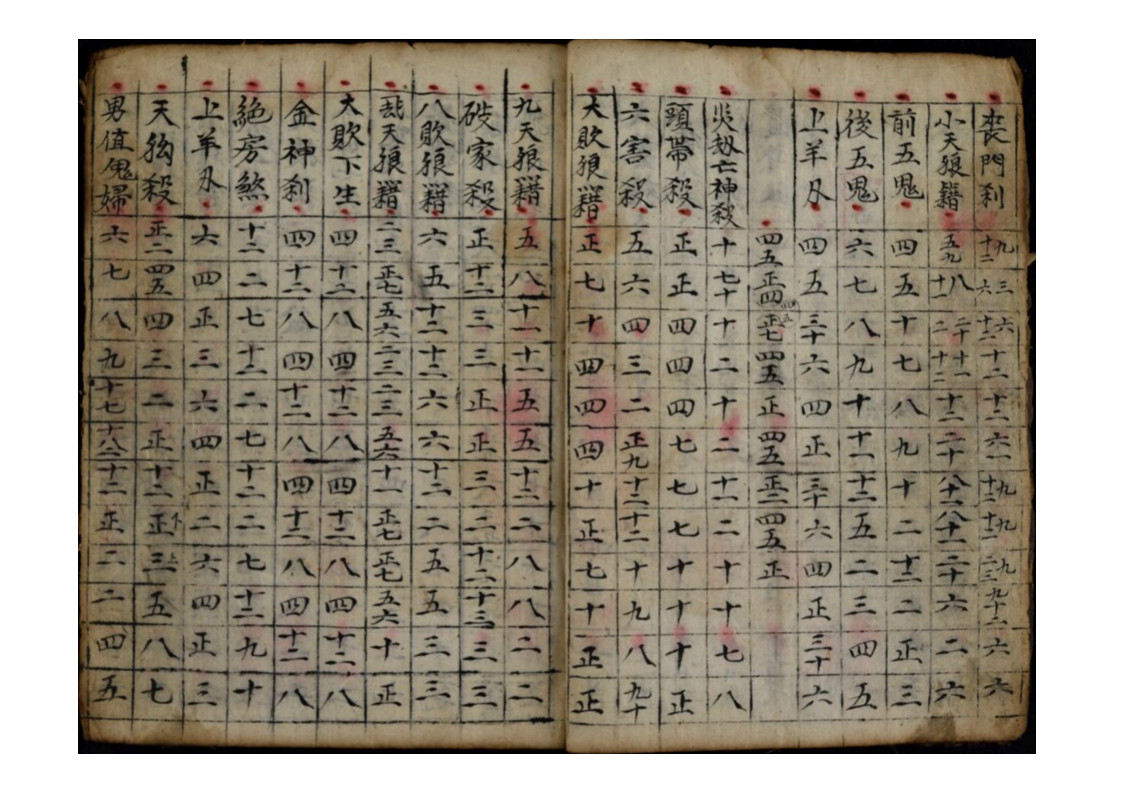 喪門刹 九十二 三六 六十二 十二 十二 六一 九十二 九十二 九二三 九十二 六 六
小天狼籍 五九 八十一 二十二 十一十二 十二 二十 八十二 八十二 二十 六 二 六
前五鬼 四 五 十 七 八 九 十 二 十二 二 正 三
後五鬼 六 七 八 九 十 十一 十二 五 二 三 四 五
上羊刄 四 五 三十 六 四 正 三十 六 四 正 三十 六
四五 正四 正七 四五 正 四五 正二 四五 正
災刼亡神殺 十 七十 十 二 十 二 十一 二 十 十 七 八
頭帶殺 正 正 四 四 四 七 七 七 十 十 十 正
六害殺 五 六 四 三 二 正九 十二 十二 十 九 八 九十
大敗狼籍 正 七 十 四 四 四 十 正 七 十 正 正
九天狼籍 五 八 十一 十一 五 五 十二 二 八 八 二 二
破家殺 正 十二 三 三 正 正 三 二 十二 十三 三 三
八敗狼籍 六 五 十二 十二 六 六 十二 二 五 五 三 三
天狼籍 二三 正七 五六 二三 二三 五六 十一 正七 正七 五六 十 正
大敗下生 四 十二 八 四 十二 八 四 十二 八 四 十二 八
金神刹 四 十二 八 四 十二 八 四 十二 八 四 十二 八
絕房煞 十二 二 七 十二 二 七 十二 二 七 十二 九 十
上羊刄 六 四 正 三 六 四 正 二 六 四 正 三
天狗殺 正二 四五 四 三 二 正 十二 正 三 五 八 七
男值鬼婦 六 七 八 九 十七 十八 十二 正 二 二 四 五